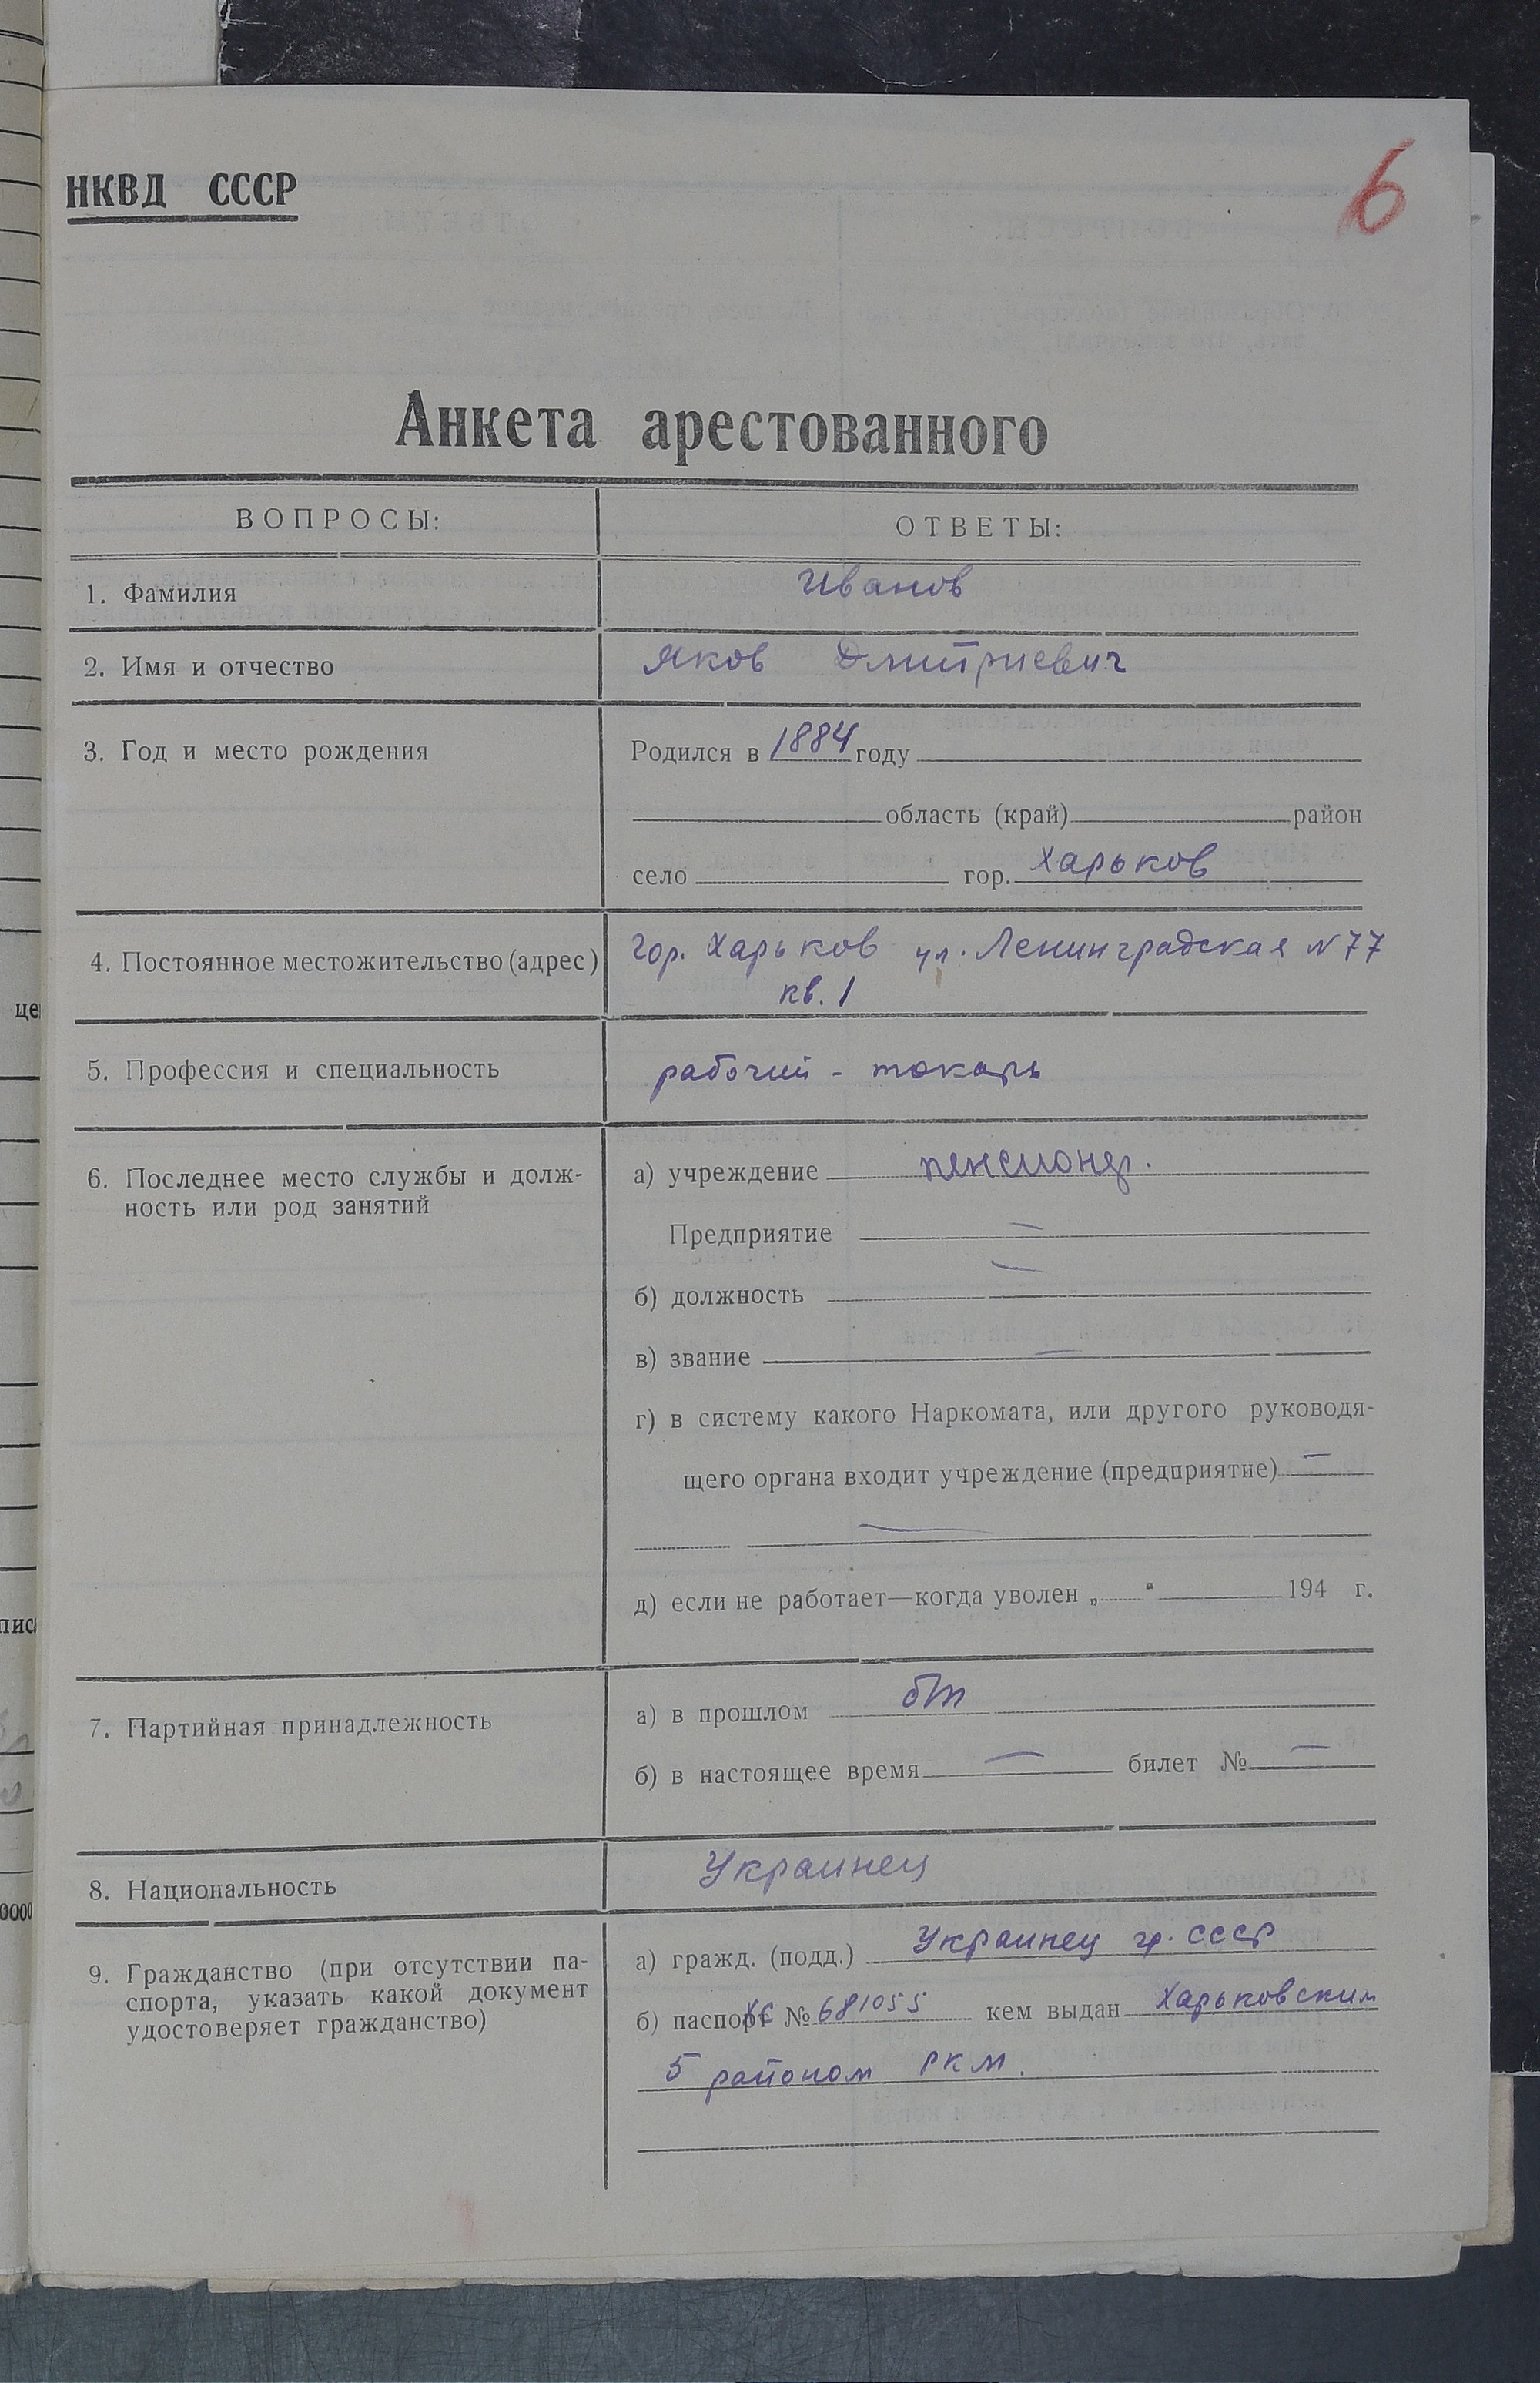 6
НКВД СССР
Анкета арестованного
ВОПРОСЫ: ОТВЕТЫ:
1. Фамилия Иванов
2. Имя и отчество Яков Дмитриевич
3. Год и место рождения Родился в 1884 году
область (край) район
село гор. Харьков
4. Постоянное местожительство (адрес) гор. Харьков ул. Ленинградская № 77
кв. 1
5. Профессия и специальность рабочий - токарь
6. Последнее место службы и долж- а) учреждение пенсионер.
ность или род занятий
Предприятие —
б) должность —
в) звание —
г) в систему какого Наркомата, или другого руководя-
щего органа входит учреждение (предприятие) —
—
д) если не работает—когда уволен „ “ 194 г.
7. Партийная принадлежность а) в прошлом б/п
б) в настоящее время — билет № —
8. Национальность Украинец
9. Гражданство (при отсутствии па- а) гражд. (подд.) Украинец гр. СССР
спорта, указать какой документ б) паспорт № 681055 кем выдан Харьковским
удостоверяет гражданство)
5 районом РКМ.
це
0000